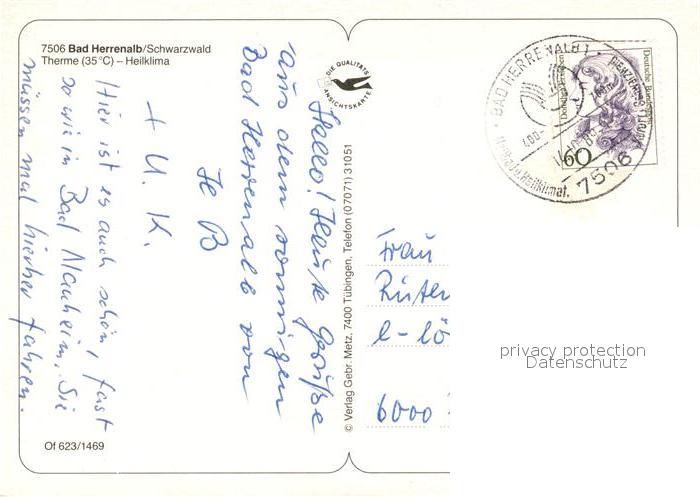 7506 Bad Herrenalb/Schwarzwald
Therme (35°C) – Heilklima
Hallo! Heute Grüße
aus dem sonnigen
Bad Herrenalb von
Fe B
+ U. K.
Hier ist es auch schön, fast
so wie in Bad Nauheim. Sie
müssen mal hierher fahren.
Of 623/1469
DIE QUALITÄTS
ANSICHTSKARTE
© Verlag Gebr. Metz, 7400 Tübingen, Telefon (07071) 31051
BAD HERRENALB 1
7506
Deutsche Bundespost
60
Frau
6000
privacy protection
Datenschutz